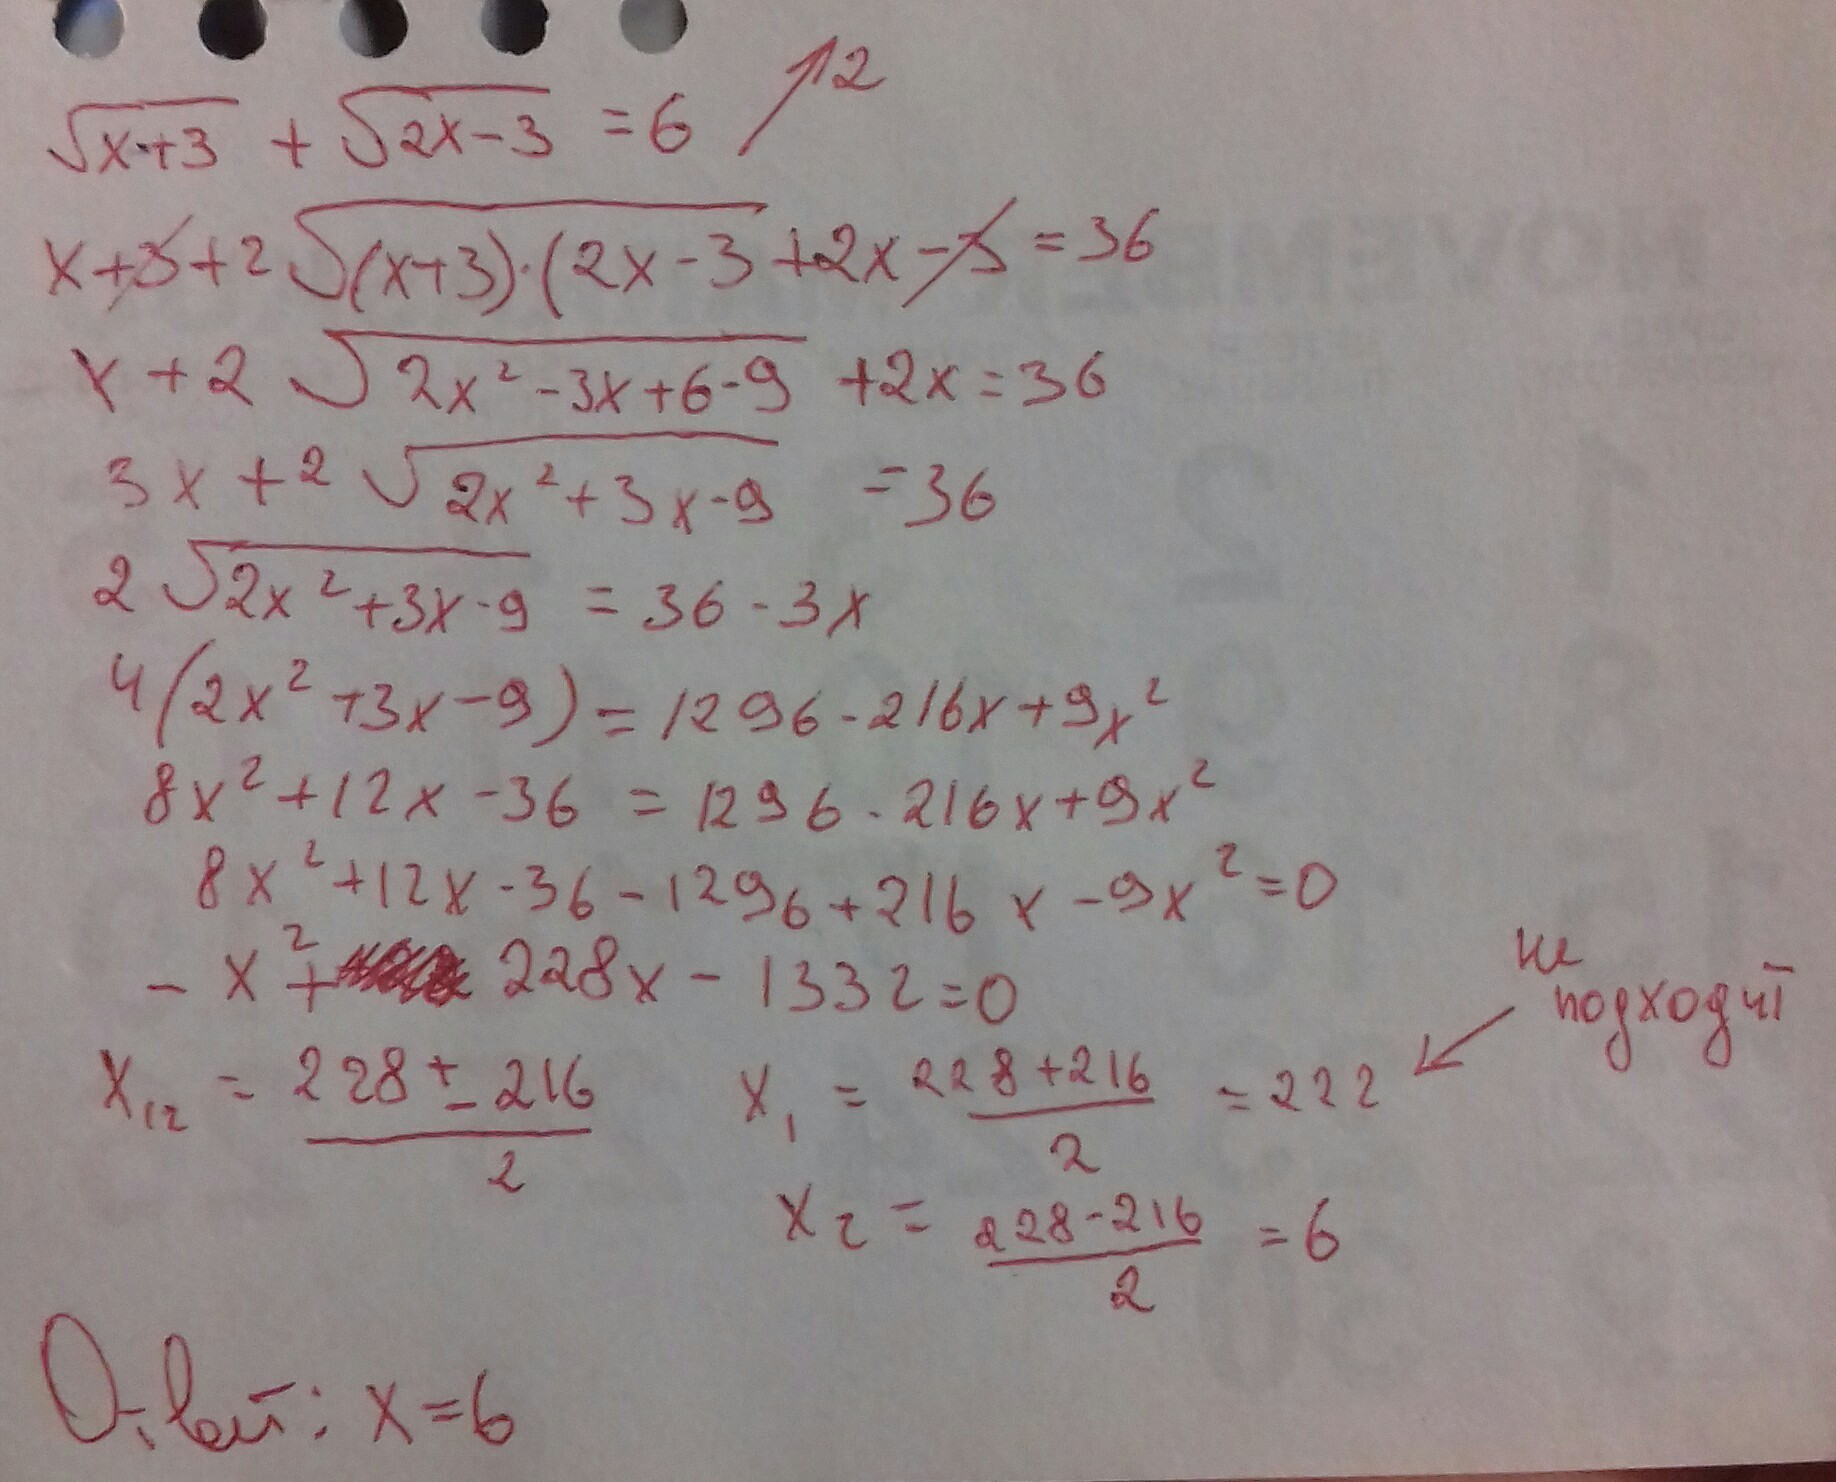 √x+3 + √2x-3 = 6 ↗12
x+3+2√(x+3)·(2x-3 +2x-3 = 36
x+2√2x²-3x+6-9 +2x=36
3x+2√2x²+3x-9 =36
2√2x²+3x-9 = 36-3x
4(2x²+3x-9)=1296-216x+9x²
8x²+12x-36 = 1296-216x+9x²
8x²+12x-36-1296+216x-9x²=0
-x²+ 228x-1332=0
не подходит
x₁₂ = (228±216)/2 x₁ = (228+216)/2 = 222
x₂ = (228-216)/2 = 6
Ответ: x=6